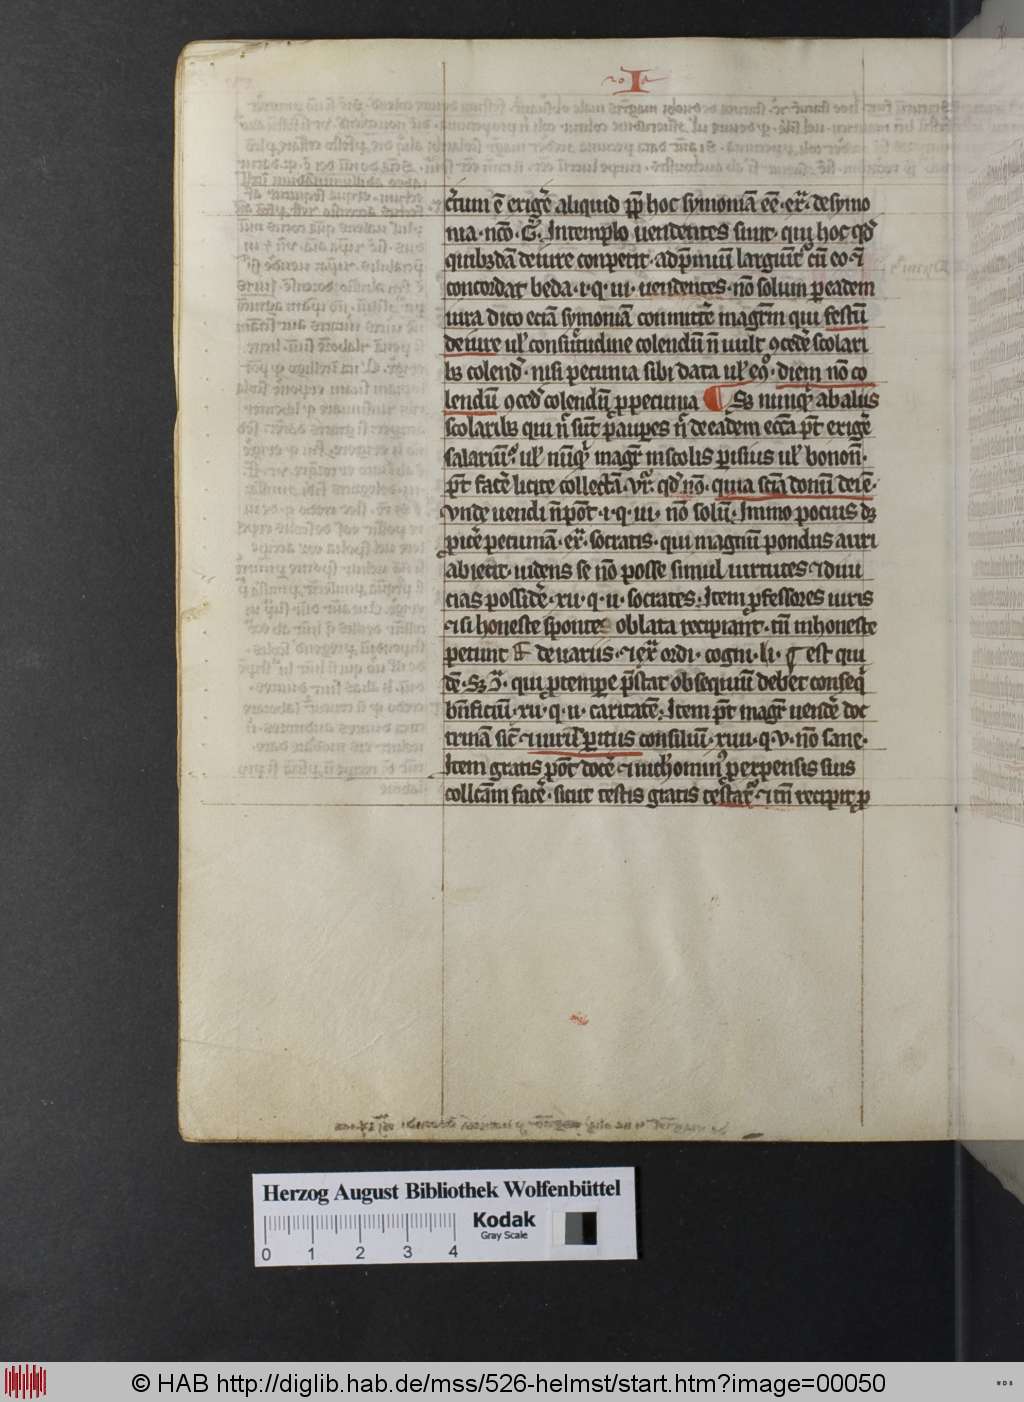 I
ctium ē exigẽ aliquid pp̄ hoc symoniā eē · ex̄. de symo
nia · nēo · Gͣ. In templo uendentes sunt · qui hoc qd̓
quibꝫdā de iure conpetit · ad p̄miū largiūt᷑ cū eo · ⁊
concordat beda · i · q · iii · uendentes · nō solum p eadem
iura dico eciā symoniā committe᷑ magr̄m qui festū
de iure ul᷑ consuetudine colendū n̄ uult ꝯcede᷑ scolari
bꝫ colend᷑ · nisi pecunia sibi data ul᷑ eꝯ · diem nō co
lendū ꝯced᷑ colendū ꝓ pecunia ¶ Sꝫ nunqͥd a baliis
scolaribꝫ qui n̄ sūt paupes n̄ de eadem ecc̄a pt̄ exige᷑
salariū · ul᷑ nūqͥd magr̄ in scolis p̄isius ul᷑ bonoñ ·
pt̄ face᷑ licite collectā · vr̄ · qd̓ nō · quia sciā donū dei ē ·
vnde uendi n̄ pōt · i · q · iii · nō solū · Immo pocius dꝫ
ꝓice᷑ pecuniā · ex̄. socratis · qui magnū pondus auri
abiecit · uidens se nō posse simul uirtutes ⁊ diui
cias posside᷑ · xii · q · ii · socrates · Item ꝓfessores iuris
⁊ si honeste sponte oblata recipiant᷑ · tn̄ inhoneste
petunt᷑ ff de uariis · ⁊ ex᷑ ordi · cogni · li · ¶ est qui
dē · Sꝫ 9ͣ · qui ꝓ tempe p̄stat obsequiū debet conseqͥ
bn̄ficiū · xii · q · ii · caritatē · Item pt̄ magr̄ uende᷑ doc
trinā sic᷑ ⁊ iuris peritus consiliū · xiiii · q · v · nō sane ·
Item gratis pōt doce᷑ ⁊ nichominꝰ ꝓ expensis suis
collc̄am face᷑ · sicut testis gratis testat᷑ · ⁊ tn̄ recipit᷑ ꝓ
Herzog August Bibliothek Wolfenbüttel
Kodak
Gray Scale
0 1 2 3 4
© HAB http://diglib.hab.de/mss/526-helmst/start.htm?image=00050